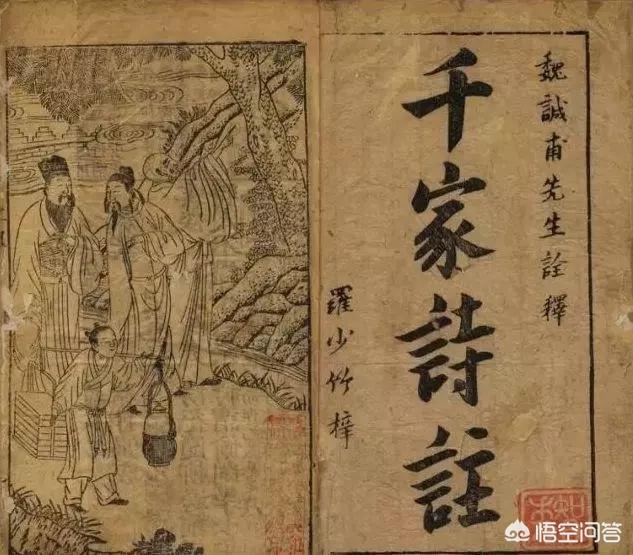 魏誠甫先生詮釋
千家詩註
羅少竹梓
悟空问答